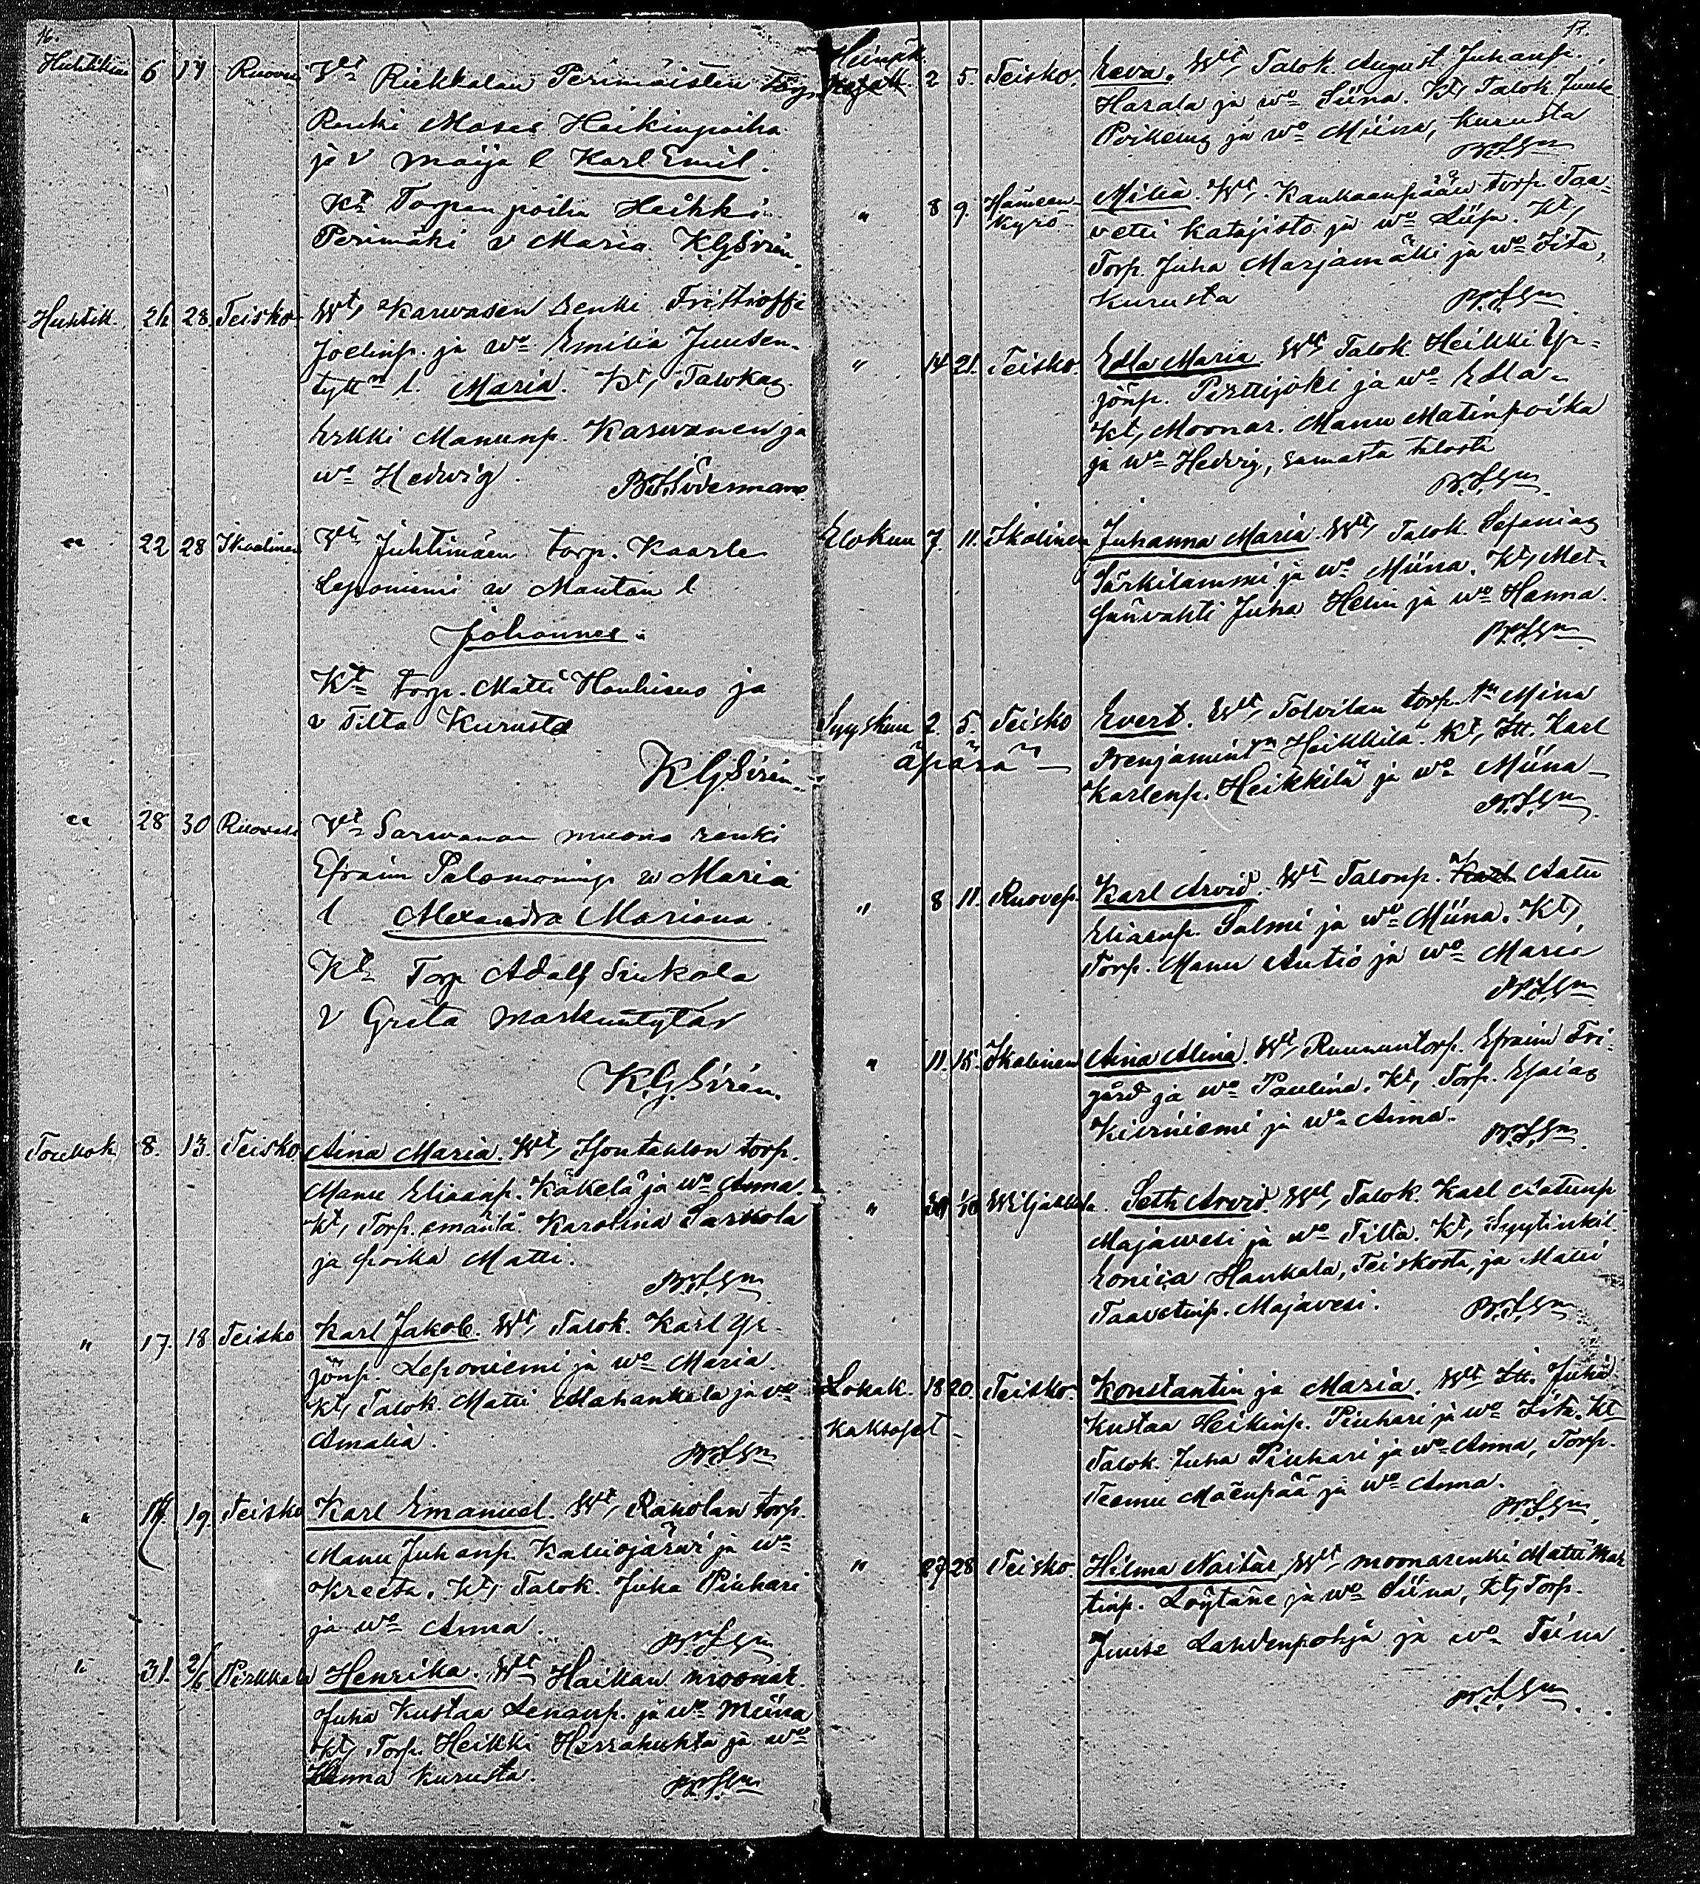 16.
Huhtikuu 6 14 Ruoves Vt Riekkalan Perimäisten
Renki Moses Heikinpoika
ja v Maija l Karl Emil.
Kt Torpan poika Heikki
Perimäki v Maria KGSirén.
Huhtik. 26 28 Teisko Wt, Karwasen Renki
Joelinp. ja wo Emilia Juusen-
tytt l. Maria. Kt, Talokas
Erkki Manunp. Karwanen ja
wo Hedwig.
" 22 28 Ikaalinen Vt Juhtimäen torp. Kaarle
Leponiemi v Mantan l
Johannes.
Kt torp. Matti Honkisuo ja
v Tilta Kurusta
KGSirén
" 28 30 Ruovesi Vt Sarwanan muona renki
Efraim Palomoninp v Maria
l Alexandra Mariana.
Kt Torp Adolf Siukola
v Greta Markuntytär
K.G.Sirén.
Toukok. 8. 13. Teisko Aina Maria. Wt, torp.
Manu Eliaanp. Käkelä ja wo Anna.
Kt, Torp. emäntä Karolina Sarkola
ja poika Matti.
" 17. 18 Teisko Karl Jakob. Wt, Talok. Karl Yr-
jönp. Leponiemi ja wo Maria
Kt, Talok. Matti Mahankala ja wo
Amalia.
" 19 Teisko Karl Emanuel. Wt, Rakolan torp.
Manu Juhanp. Kaluojärwi ja wo
Kreeta. Kt, Talok. Juha Pinhari
ja wo Anna.
" 31. 2/6 Pirkkala Henrika. Wt Haikan moonar.
Juha Kustaa ja wo Miina
Kt, Torp. Heikki Herrahuhta ja wo
Hanna Kurusta.
17.
Heinäk. 2 5. Teisko. Eeva. Wt, Talok. August Juhanp.
Harala ja wo Siina. Kt, Talok. Juuse
ja wo Miina, Kurusta
" 8 9. Hämeen- Milia. Wt, Kankaanpään torp. Taa-
kyrö vetti Katajisto ja wo Liisa. Kt,
Torp. Juha Marjamäki ja wo Fita,
Kurusta
" 14 21. Teisko. Edla Maria. Wt, Talok. Heikki Yr-
jönp. Perttijoki ja wo Edla.
Kt, Moonar. Manu Matinpoika
ja wo Hedvig, samasta talosta
Elokuu 7. 11. Ikalinen Juhanna Maria. Wt, Talok. Sefanias
Särkilammi ja wo Miina. Kt, Met-
sänvahti Juha Helin ja wo Hanna.
Syyskuu 2. 5. Teisko Evert. Wt, Tolvilan torp. tr Mina
äpärä Benjamint. Heikkilä. Kt, Itt. Karl
Karlenp. Heikkilä ja wo Miina
" 8 11. Ruoves. Karl Arvid. Wt Talonp. Aatu
Eliaanp. Salmi ja wo Miina. Kt,
Torp. Manu Autio ja wo Maria
" 11. 15. Ikalinen Aina Alina. Wt, Ruununtorp. Efraim Fri-
gård ja wo Paulina. Kt, Torp. Esaias
Kierniemi ja wo Anna.
" Wiljakkala. Seth Arvid. Wt, Talok. Karl Aatunp
Majawesi ja wo Tilta. Kt, Syytinkil.
Haukala, Teiskosta, ja Matti
Taavetinp. Majavesi.
Lokak. 18 20. Teisko. Konstantin ja Maria. Wt Itt. Juha
Kaksoset Kustaa Heikinp. Pinhari ja wo Fita. Kt
Talok. Juha Pinhari ja wo Anna, Torp.
Teemu Mäenpää ja wo Anna.
" 27 28 Teisko. Hilma Naitäs. Wt, moonarenki Matti Mar
tinp. Löytäne ja wo Siina, Kt, Torp.
Juuse Lahdenpohja ja wo Tiina.